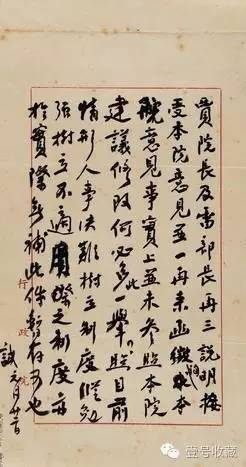 貴院長及雷部長再三說明接
受本院意見至一再來函徵求本
院意見事實上並未參照本院
建議修改何必多此一舉照目前
情形人事決難樹立制度縱勉
強樹立不適用機之制度亦
於實際無補此件暫存可也
誠 月廿
行政院
壹号收藏